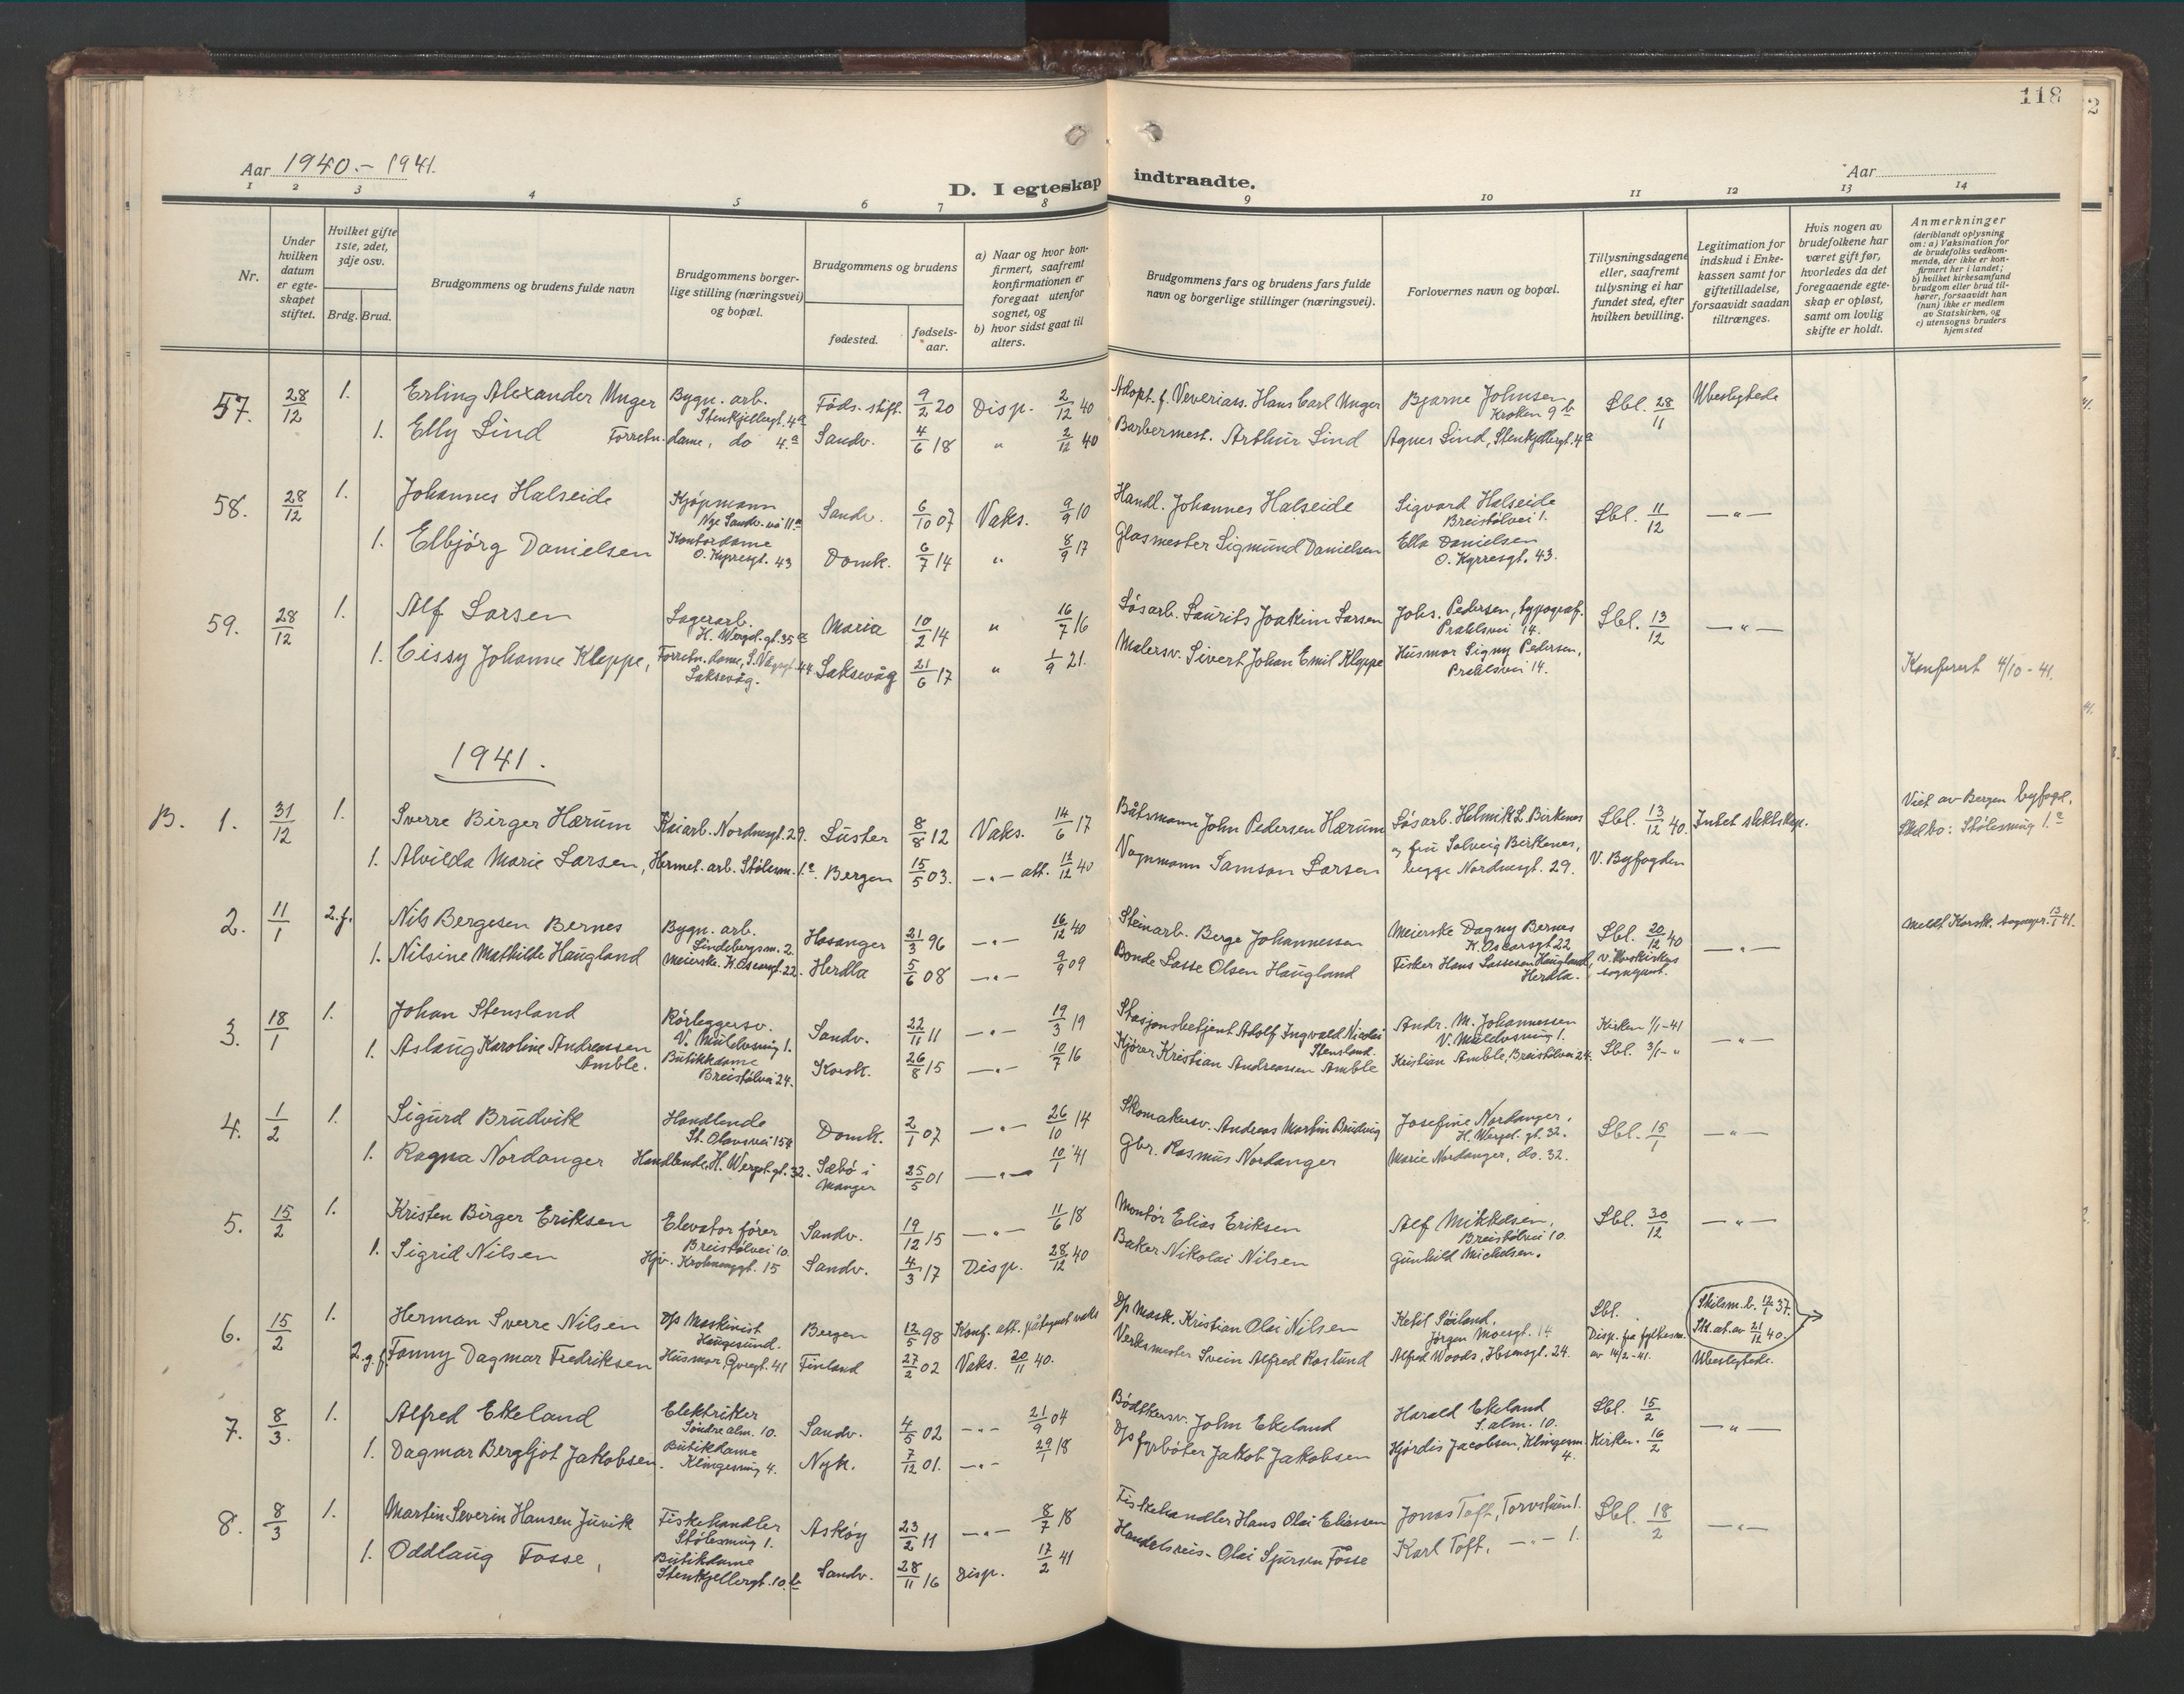 118
Aar 1940.- 1941.
D. I egteskap indtraadte.
Aar
1 2 3 4 5 6 7 8 9 10 11 12 13 14
Nr.
Under hvilken datum er egteskapet stiftet.
Hvilket gifte 1ste, 2det, 3dje osv.
Brdg. Brud.
Brudgommens og brudens fulde navn
Brudgommens borgerlige stilling (næringsvei) og bopæl.
Brudgommens og brudens
fødested.
fødselsaar.
a) Naar og hvor konfirmert, saafremt konfirmationen er foregaat utenfor sognet, og
b) hvor sidst gaat til alters.
Brudgommens fars og brudens fars fulde navn og borgerlige stillinger (næringsvei).
Forlovernes navn og bopæl.
Tillysningsdagene eller, saafremt tillysning ei har fundet sted, efter hvilken bevilling.
Legitimation for indskud i Enkekassen samt for giftetilladelse, forsaavidt saadan tiltrænges.
Hvis nogen av brudefolkene har været gift før, hvorledes da det foregaaende egteskap er opløst, samt om lovlig skifte er holdt.
Anmerkninger
(deriblandt oplysning om: a) Vaksination for de brudefolks vedkommende, der ikke er konfirmert her i landet; b) hvilket kirkesamfund brudgom eller brud tilhører, forsaavidt han (hun) ikke er medlem av Statskirken, og c) utensogns bruders hjemsted
57. 28/12 1. Erling Alexander Unger Bygn. arb. Stenkjellergt. 4a Føds. stift. 9/2 20 Disp. 2/12 40 Adopt. f. Veveriass. Hans Carl Unger Bjarne Johnsen Kroken 9b Sbl. 28/11 Ubeslegtede
1. Elly Lind Forretn. dame, do 4a Sandv. 4/6 18 " 2/12 40 Barbermest. Arthur Lind Agnes Lind, Stenkjellergt. 4a
58. 28/12 1. Johannes Halseide Kjøpmann Nye Sandv. vei 11a Sandv. 6/10 07 Vaks. 9/9 10 Handl. Johannes Halseide Sigvard Halseide Breistølvei 1. Sbl. 11/12 —"—
1. Elbjörg Danielsen Kontordame O. Kyrresgt. 43 Domk. 6/7 14 " 8/9 17 Glasmester Sigmund Danielsen Ella Danielsen O. Kyrresgt. 43.
59. 28/12 1. Alf Larsen Lagerarb. H. Wergel. gt. 35a Maria 10/2 14 " 16/7 16 Løsarb. Laurits Joakim Larsen Johs. Pedersen, typograf. Prahlsvei 14. Sbl. 13/12 —"—
1. Cissy Johanne Kleppe, Forretn. dame, Laksevåg. Laksevåg 21/6 17 " 1/9 21. Malersv. Sivert Johan Emil Kleppe Husmor Signy Pedersen, Prahlsvei 14. Konferert 4/10-41.
1941.
B. 1. 31/12 1. Sverre Birger Hærum Kaiarb. Nordnesgt. 29. Luster 8/8 12 Vaks. 14/6 17 Båtsmann John Pedersen Hærum Løsarb. Helmik L. Birkenes Sbl. 13/12 40. Intet slektskap. Viet av Bergen byfogd.
1. Alvilda Marie Larsen, Hermet. arb. Stølesm. 1a. Bergen 15/5 03. —"— att. 12/12 40 Vognmann Samson Larsen og fru Solveig Birkenes, begge Nordnesgt. 29. V. Byfogden Stølesmug 1a
2. 11/1 2.f. Nils Bergesen Bernes Bygn. arb. Lindebergsm. 2. Hosanger 21/3 96 —"— 16/12 40 Steinarb. Berge Johannessen Meierske Dagny Bernes K. Oscarsgt 22 Sbl. 20/12 40 —"— Meldt Korsk. sogneprest 13/1 41.
1. Nilsine Mathilde Haugland Meierske. K. Oscarsgt. 22. Herdla 5/6 08 —"— 9/9 09 Bonde Lasse Olsen Haugland Fisker Hans Lassesen Haugland, Herdla. v. Korskirkens sogneprest.
3. 18/1 1. Johan Stensland Rørleggersv. V. Muldvsmug 1. Sandv. 22/11 11 —"— 19/3 19 Stasjonsbetjent Adolf Ingvald Nicolai Stensland. Andr. M. Johannessen V. Muldvsmug 1. Kirken 1/1-41 —"—
1. Aslaug Karoline Andreassen Amble. Butikkdame Breistølvei 24. Korsk. 26/8 15 —"— 10/7 16 Kjører Kristian Andreassen Amble Kristian Amble, Breistølvei 24. Sbl. 3/1-"
4. 1/2 1. Sigurd Brudvik Handlende St. Olavsvei 15a Domk. 2/1 07 —"— 26/10 14 Skomakersv. Andreas Martin Brudvig Josefine Nordanger, H. Wergel. gt. 32. Sbl. 15/1 —"—
1. Ragna Nordanger Handlende H. Wergel. gt. 32. Sæbø i Manger 25/5 01 —"— 10/1 41 Gbr. Rasmus Nordanger Marie Nordanger, do. 32.
5. 15/2 1. Kristen Birger Eriksen Elevator fører Breistølvei 10. Sandv. 19/12 15 —"— 11/6 18 Montør Elias Eriksen Alf Mikkelsen, Breistølvei 10. Sbl. 30/12 —"—
1. Sigrid Nilsen Hjv. Krohnenggt. 15 Sandv. 4/3 17 Disp. 28/12 40 Baker Nikolai Nilsen Gunhild Michelsen.
6. 15/2 1. Herman Sverre Nilsen D/s Maskinist Haugesund. Bergen 12/5 98 Konf. att. påtegnet vaks D/p Mask. Kristian Olai Nilsen Ketil Søiland, Jørgen Moesgt. 14 Sbl. Skilsm. b. 12/1 37.
2.g.f. Fanny Dagmar Fredriksen Husmor, 41 Finland 27/2 02 Vaks. 20/11 40. Verksmester Svein Alfred Roslund Alfred Woods, Ibsensgt. 24. Disp. fra fylkesm. av 14/2-41. Sk. at. av 21/12 40. Ubeslegtede.
7. 8/3. 1. Alfred Ekeland Elektriker Søndre alm. 10. Sandv. 4/5 02 —"— 21/9 04 Bødtkersv. John Ekeland Harald Ekeland S. alm. 10. Sbl. 15/2 —"—
1. Dagmar Bergljot Jakobsen. Butikdame Klingesmug 4. Nyk. 7/12 01. —"— 29/1 18 D/s fyrbøter Jakob Jakobsen Hjørdis Jacobsen, Klingesm. 4. Kirken. 16/2
8. 8/3 1. Martin Severin Hansen Juvik Fiskehandler Stølesmug 1. Askøy 23/2 11 —"— 8/7 18 Fiskehandler Hans Olai Eliassen Jonas Toft, 1. Sbl. 18/2 —"—
1. Oddlaug Fosse, Butikdame Stenkjellergt. 10.b Sandv. 28/11 16 Disp. 17/2 41 Handelsreis. Olai Sjursen Fosse Karl Toft, —"— 1.